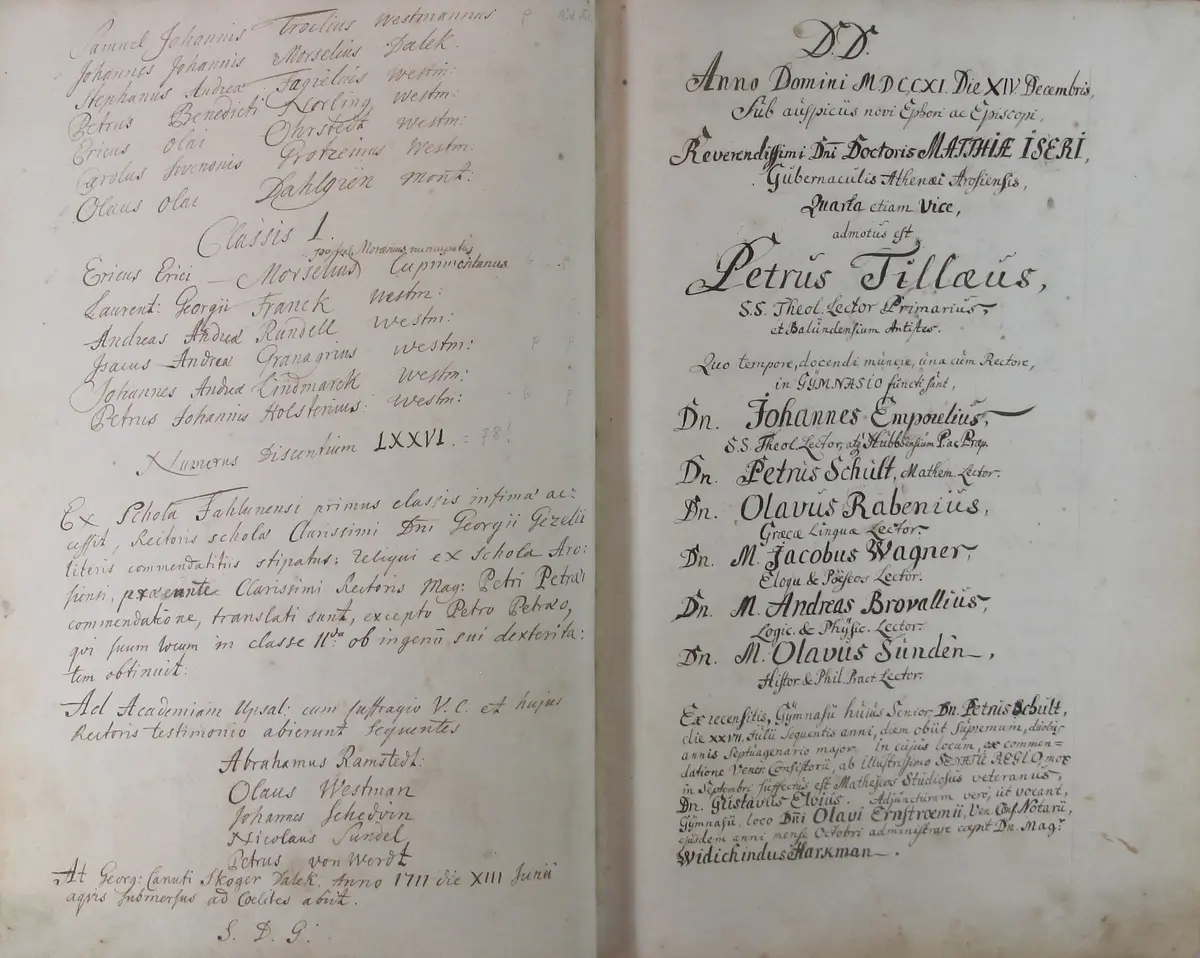 Samuel Johannis Troelius Westmannus
Johannes Johannis Morselius Dalek.
Stephanus Andreæ Fagrelius Westm:
Petrus Benedicti Norling Westm:
Ericus Olai Ohrstedt Westm:
Carolus Svenonis Grotzenius Westm:
Olaus Olai Dahlgren Mont:
Classis I.
postea Moræus nuncupatus
Ericus Erici — Morselius Cuprimontanus
Laurent: Georgii Franck Westm:
Andreas Andreæ Rundell Westm:
Isacus Andreæ Granagrius Westm:
Johannes Andreæ Lindmarck Westm:
Petrus Johannis Holstenius: Westm:
Numerus Discentium LXXVI. = 78!
Ex Schola Fahlunensi primus classis infimæ ac:
cessit, Rectoris scholæ Clarissimi Dni Georgii Gezelii
literis commendatitiis stipatus; reliqui ex Schola Aro:
siensi, præeunte Clarissimi Rectoris Mag: Petri Petræi
commendatione, translati sunt, excepto Petro Petræo,
qvi suum locum in classe II:da ob ingenii sui dexterita:
tem obtinuit:
Ad Academiam Upsal: cum suffragio V. C. et hujus
Rectoris testimonio abierunt sequentes
Abrahamus Ramstedt:
Olaus Westman
Johannes Schedvin
Nicolaus Sundel
Petrus von Wordt
At Georg: Canuti Skoger Dalek. Anno 1711 die XIII Junii
aqvis submersus ad Coelites abiit.
S. D. G:
D.D.
Anno Domini MDCCXI. Die XIV Decembris,
Sub auspiciis novi Ephori ac Episcopi,
Reverendissimi Dni Doctoris MATTHIÆ ISERI,
Gubernaculis Athenæi Arosiensis,
Quarta etiam Vice,
admotus est
Petrus Tillæus,
S.S. Theol. Lector Primarius,
et Balundensium Antistes.
Quo tempore, docendi munere, una cum Rectore,
in GYMNASIO functi sunt,
Dn. Johannes Emporelius,
S.S. Theol. Lector, atq; Hubbensium P. ac Præp.
Dn. Petrus Schult, Mathem. Lector.
Dn. Olavus Rabenius,
Græcæ Linguæ Lector.
Dn. M. Jacobus Wagner,
Eloqu & Poëseos Lector.
Dn. M. Andreas Brovallius,
Logic. & Physic. Lector.
Dn. M. Olavus Sundén,
Histor & Phil. Pract Lector.
Ex recensitis, Gymnasii huius Senior, Dn. Petrus Schult,
die XXVII. Julii sequentis anni, diem obiit supremum, duobus
annis Septuagenario major. In cujus locum, ex commen=
datione Vener. Consistorii, ab illustrissimo SENATU REGIO, mox
in Septembri suffectus est Matheseos Studiosus veteranus,
Dn. Gustavus Elvius. Adjuncturam vero, ut vocant,
Gymnasii, loco Dni Olavi Ernstroemii, Ven. Cons. Notarii,
ejusdem anni mense Octobri administrare coepit Dn. Mag.r
Widichindus Harkman.